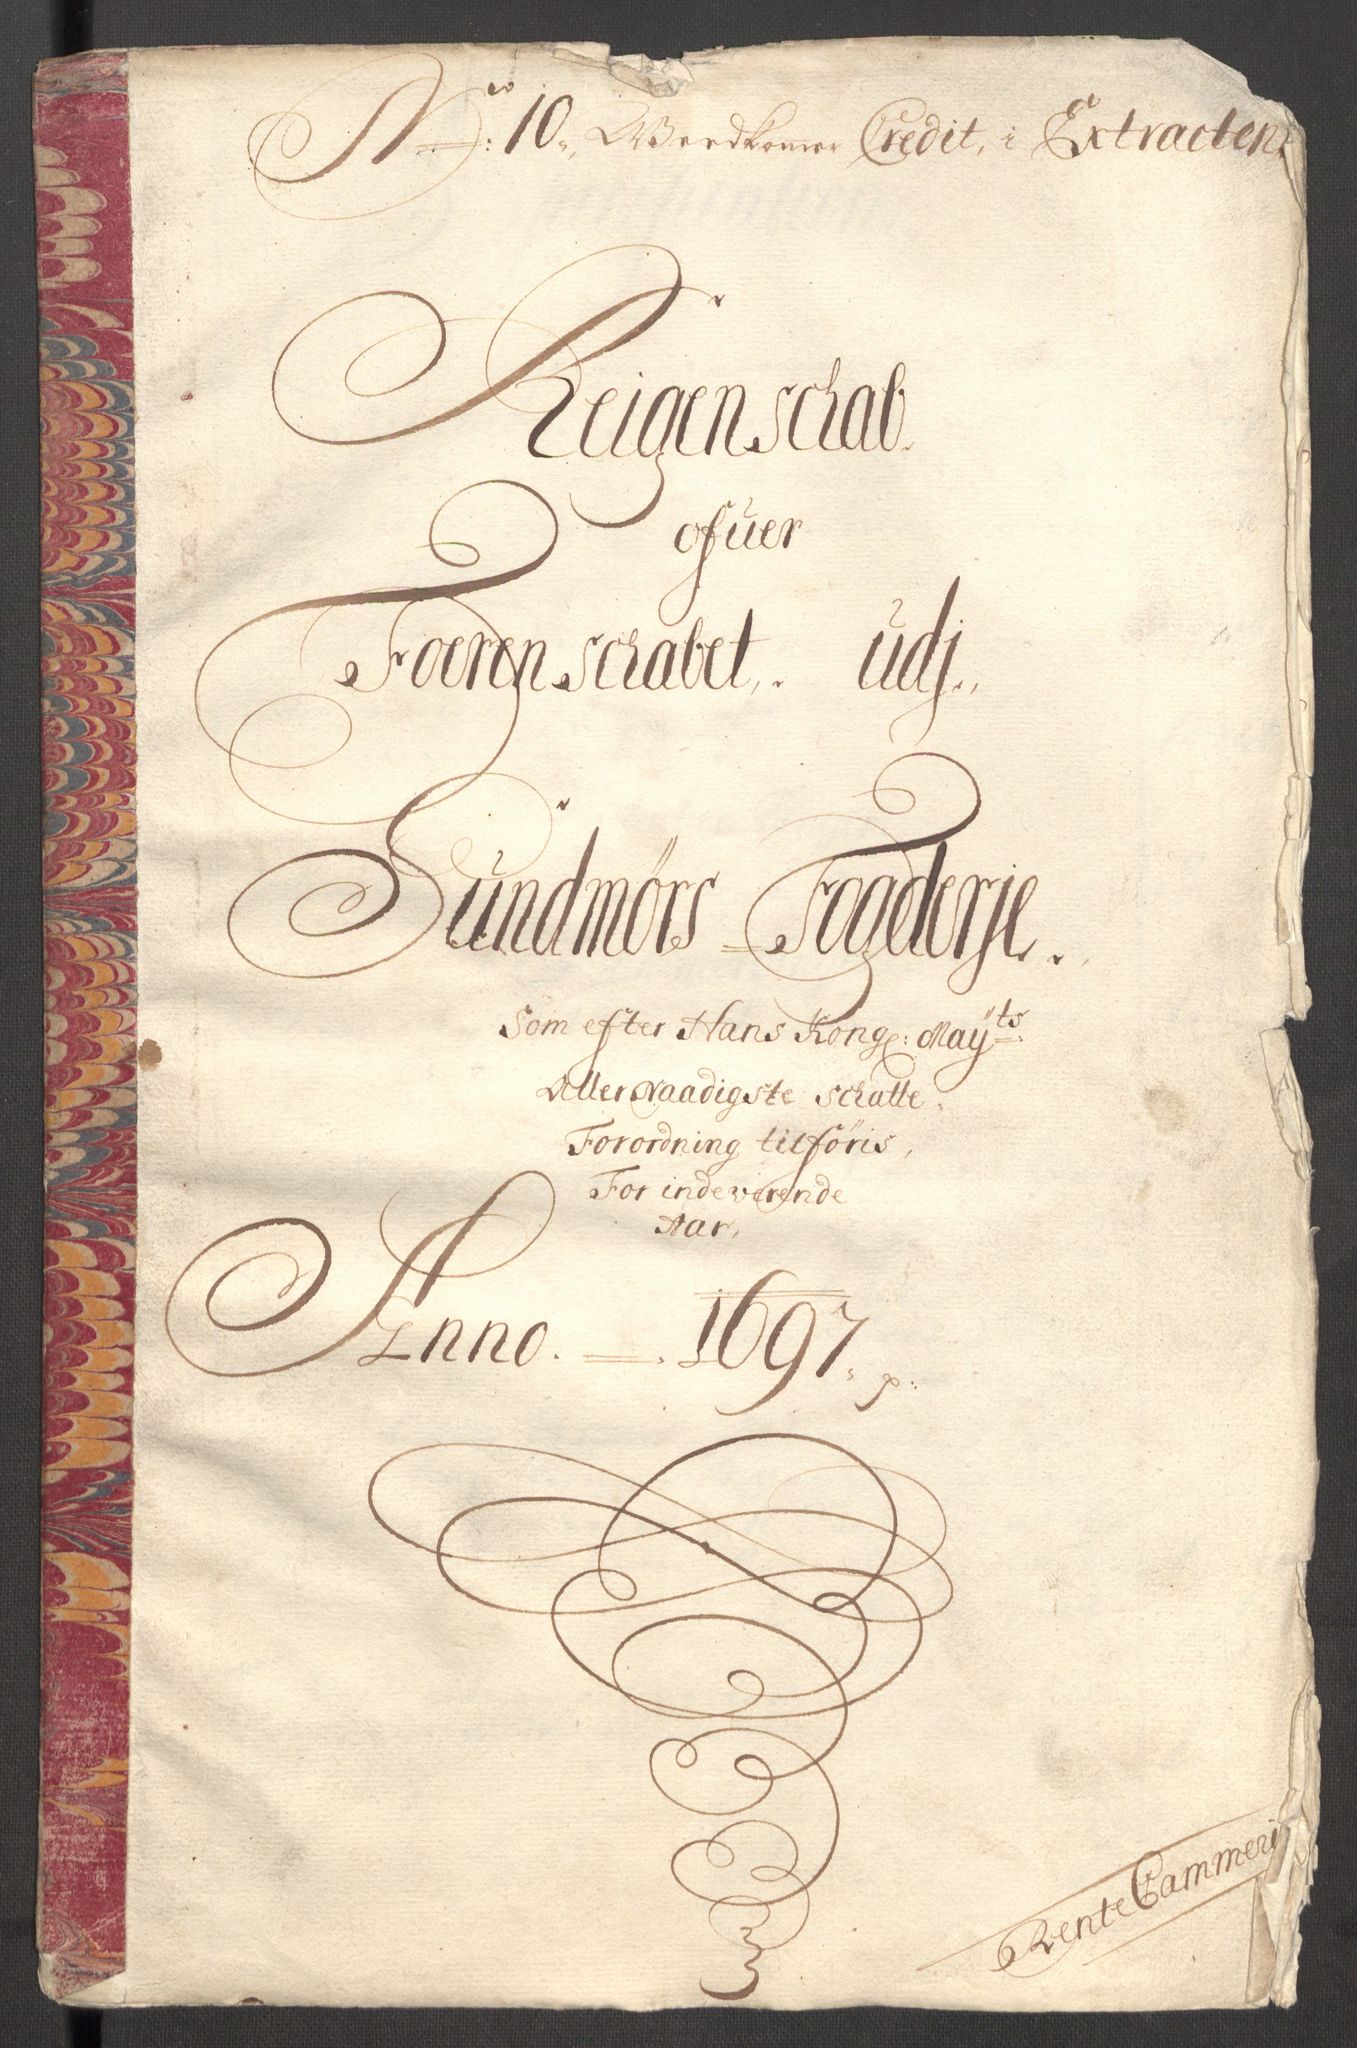 No: 10., Vedkomer Credit, i Extracten
Reigenschab.
ofuer
Foerenschabet,. udj.,
Sundmörs Fogderje.
Som efter Hans Kong: Mayts
Aller Naadigste schatte
Forordning tilföris,
For indeverende
Aar,
Anno. 1697. p:
Rente Cammeri